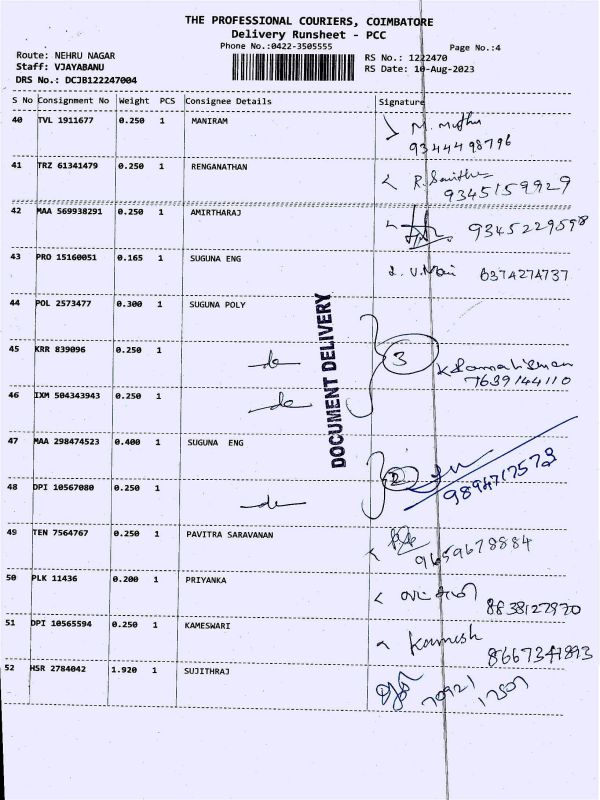 THE PROFESSIONAL COURIERS, COIMBATORE
Delivery Runsheet - PCC
Phone No.:0422-3505555
Page No.:4
Route: NEHRU NAGAR
Staff: VJAYABANU
DRS No.: DCJB122247004
RS No.: 1222470
RS Date: 10-Aug-2023
S No Consignment No Weight PCS Consignee Details Signature
40 TVL 1911677 0.250 1 MANIRAM
M. Muthu
9344498796
41 TRZ 61341479 0.250 1 RENGANATHAN
9345159929
42 MAA 569938291 0.250 1 AMIRTHARAJ
9345229598
43 PRO 15160051 0.165 1 SUGUNA ENG
6374274737
44 POL 2573477 0.300 1 SUGUNA POLY
DOCUMENT DELIVERY
45 KRR 839096 0.250 1 do
3
7639144110
46 IXM 504343943 0.250 1 do
47 MAA 298474523 0.400 1 SUGUNA ENG
2
9894717573
48 DPI 10567080 0.250 1 do
49 TEN 7564767 0.250 1 PAVITRA SARAVANAN
9659678884
50 PLK 11436 0.200 1 PRIYANKA
8838127970
51 DPI 10565594 0.250 1 KAMESWARI
Kamesh
8667347893
52 HSR 2784042 1.920 1 SUJITHRAJ
70921
17507